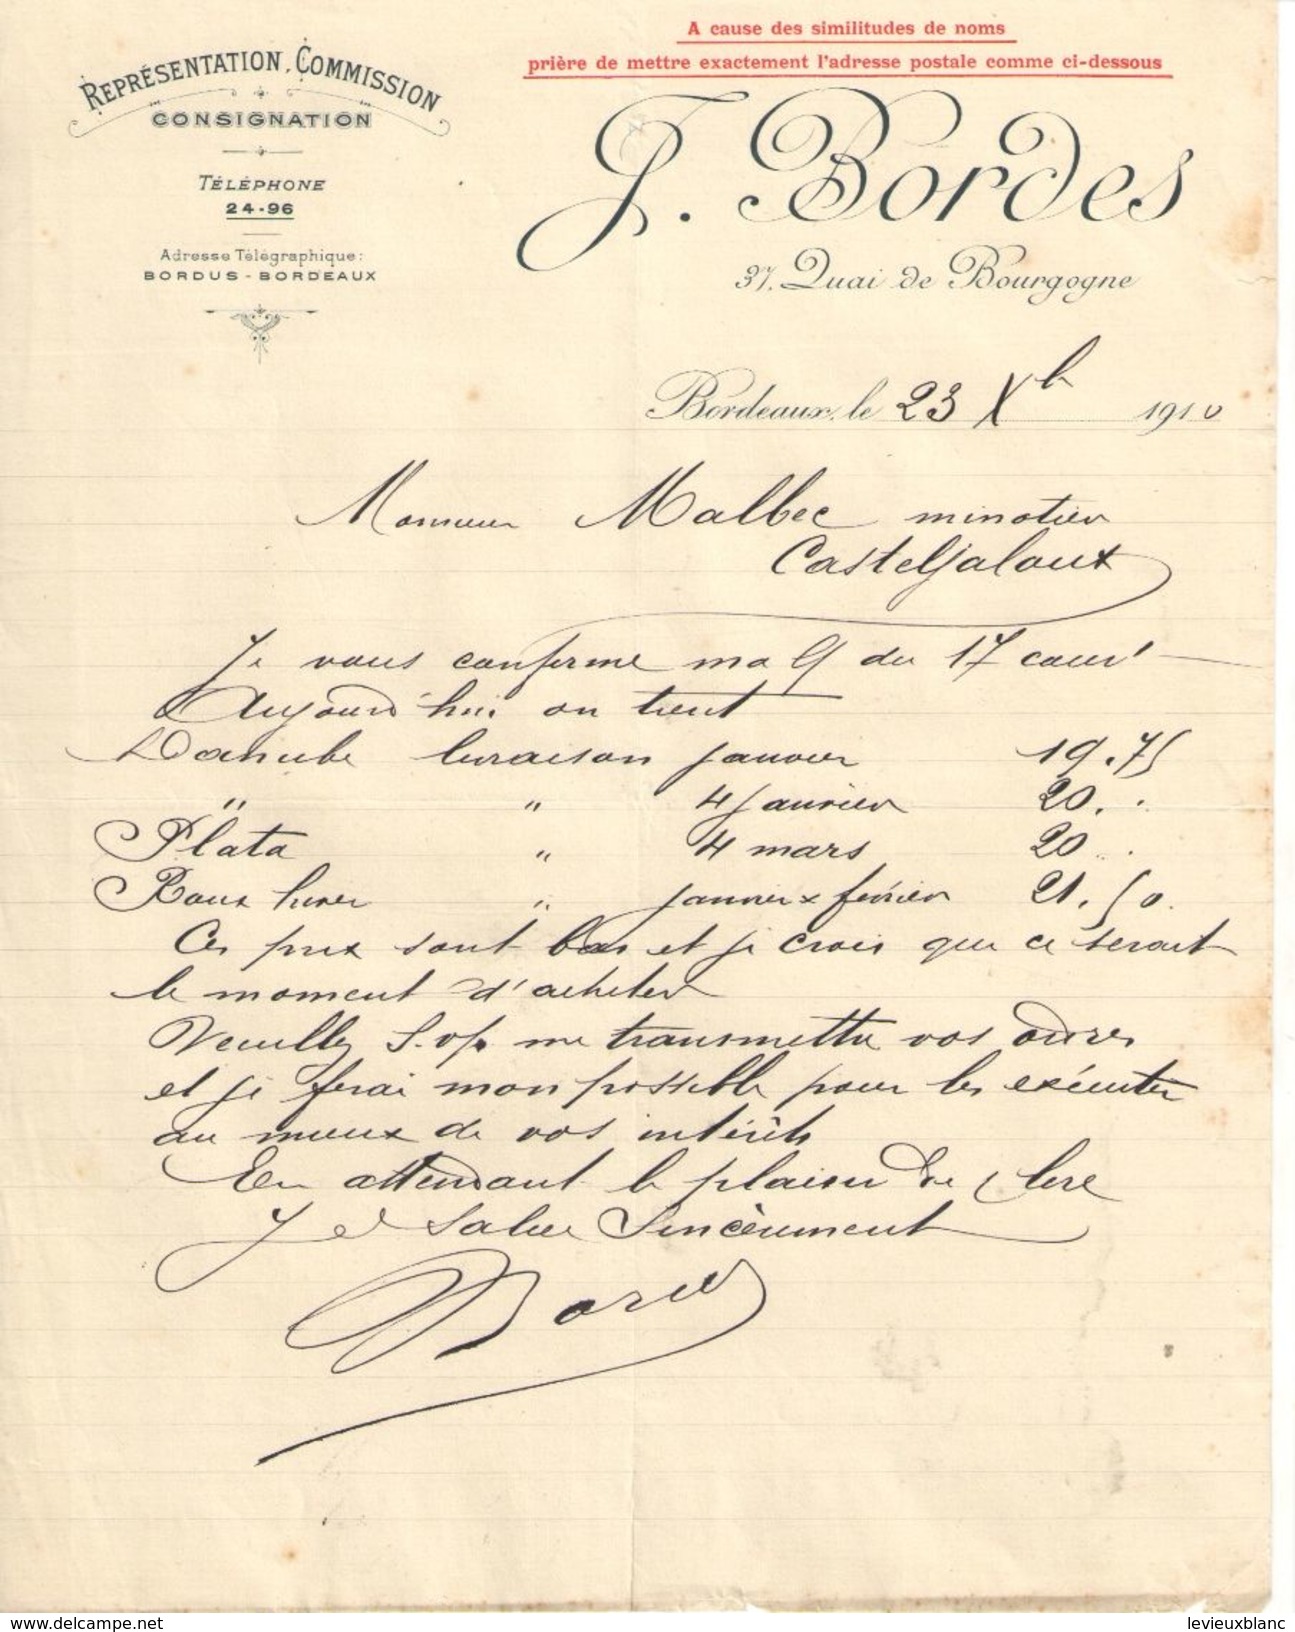 A cause des similitudes de noms
prière de mettre exactement l'adresse postale comme ci-dessous
REPRÉSENTATION, COMMISSION
CONSIGNATION
TÉLÉPHONE
24-96
Adresse Télégraphique:
BORDUS - BORDEAUX
J. Bordes
37, Quai de Bourgogne
Bordeaux, le 23 Xb 1910
Monsieur Malbec minotier
Casteljaloux
Je vous confirme ma du 17 cour
Aujourd'hui on tient
Danube livraison janvier 19.75
" " 4 janvier 20. .
Plata " 4 mars 20 . .
Roux hiver " janvier x février 21.50.
Ces prix sont bas et je crois que ce serait
le moment d'acheter
Veuillez S.v.p. me transmettre vos ordres
et je ferai mon possible pour les exécuter
au mieux de vos intérêts
En attendant le plaisir de lire
Je salue Sincèrement
Bordes
www.delcampe.net
levieuxblanc